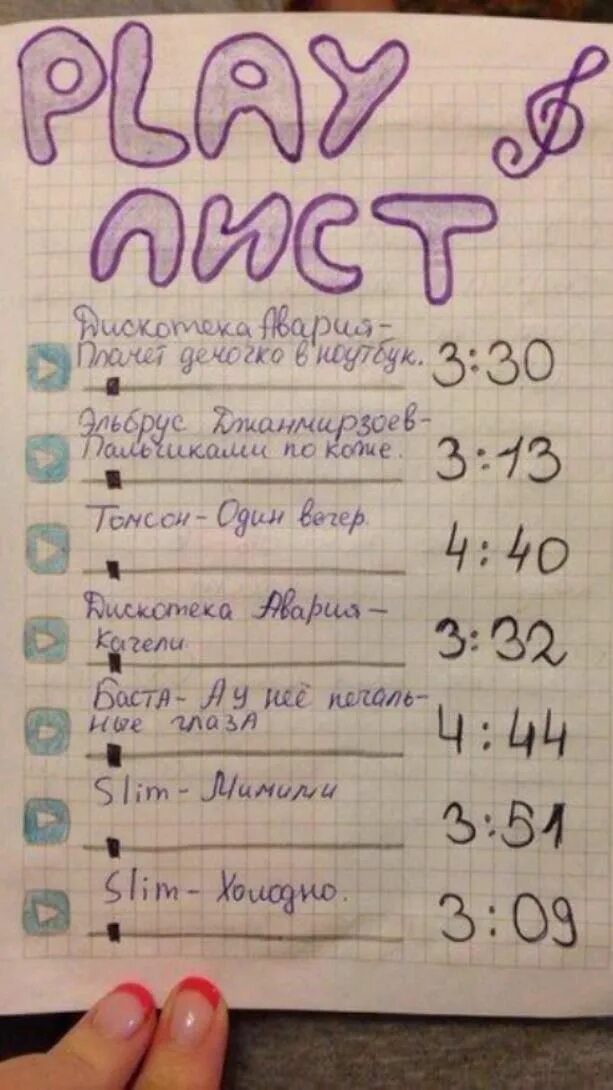 PLAY
ЛИСТ
Дискотека Авария-
Плачет девочка в ноутбук.
3:30
Эльбрус Джанмирзоев-
Пальчиками по коже.
3:13
Томсон- Один вечер.
4:40
Дискотека Авария-
качели.
3:32
Баста- А у неё печаль-
ные глаза
4:44
Slim- Мимими
3:51
Slim- Холодно.
3:09